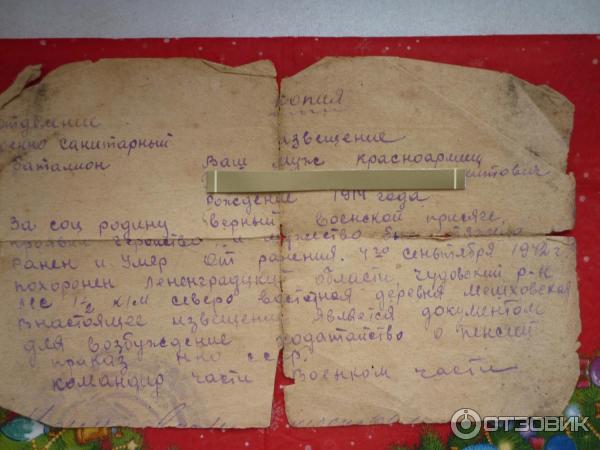 копия
отдемние
венно санитарный извещение
баталион Ваш муж красноармиц
митович
рождение 1914 года
За соц родину верный военской присяге,
проявив геройство и мужество был тяжело
ранен и умер от ранения. 4го сентября 1942 г
похоронен Лененградцкий области, Чудовский р-н
лес 1½ к/м северо восточная деревня Мешховская
Внастоящее извещение является документом
для возбуждение ходатайство о пенсий
приказ нно ссср.
командир части Военком части
ОТЗОВИК